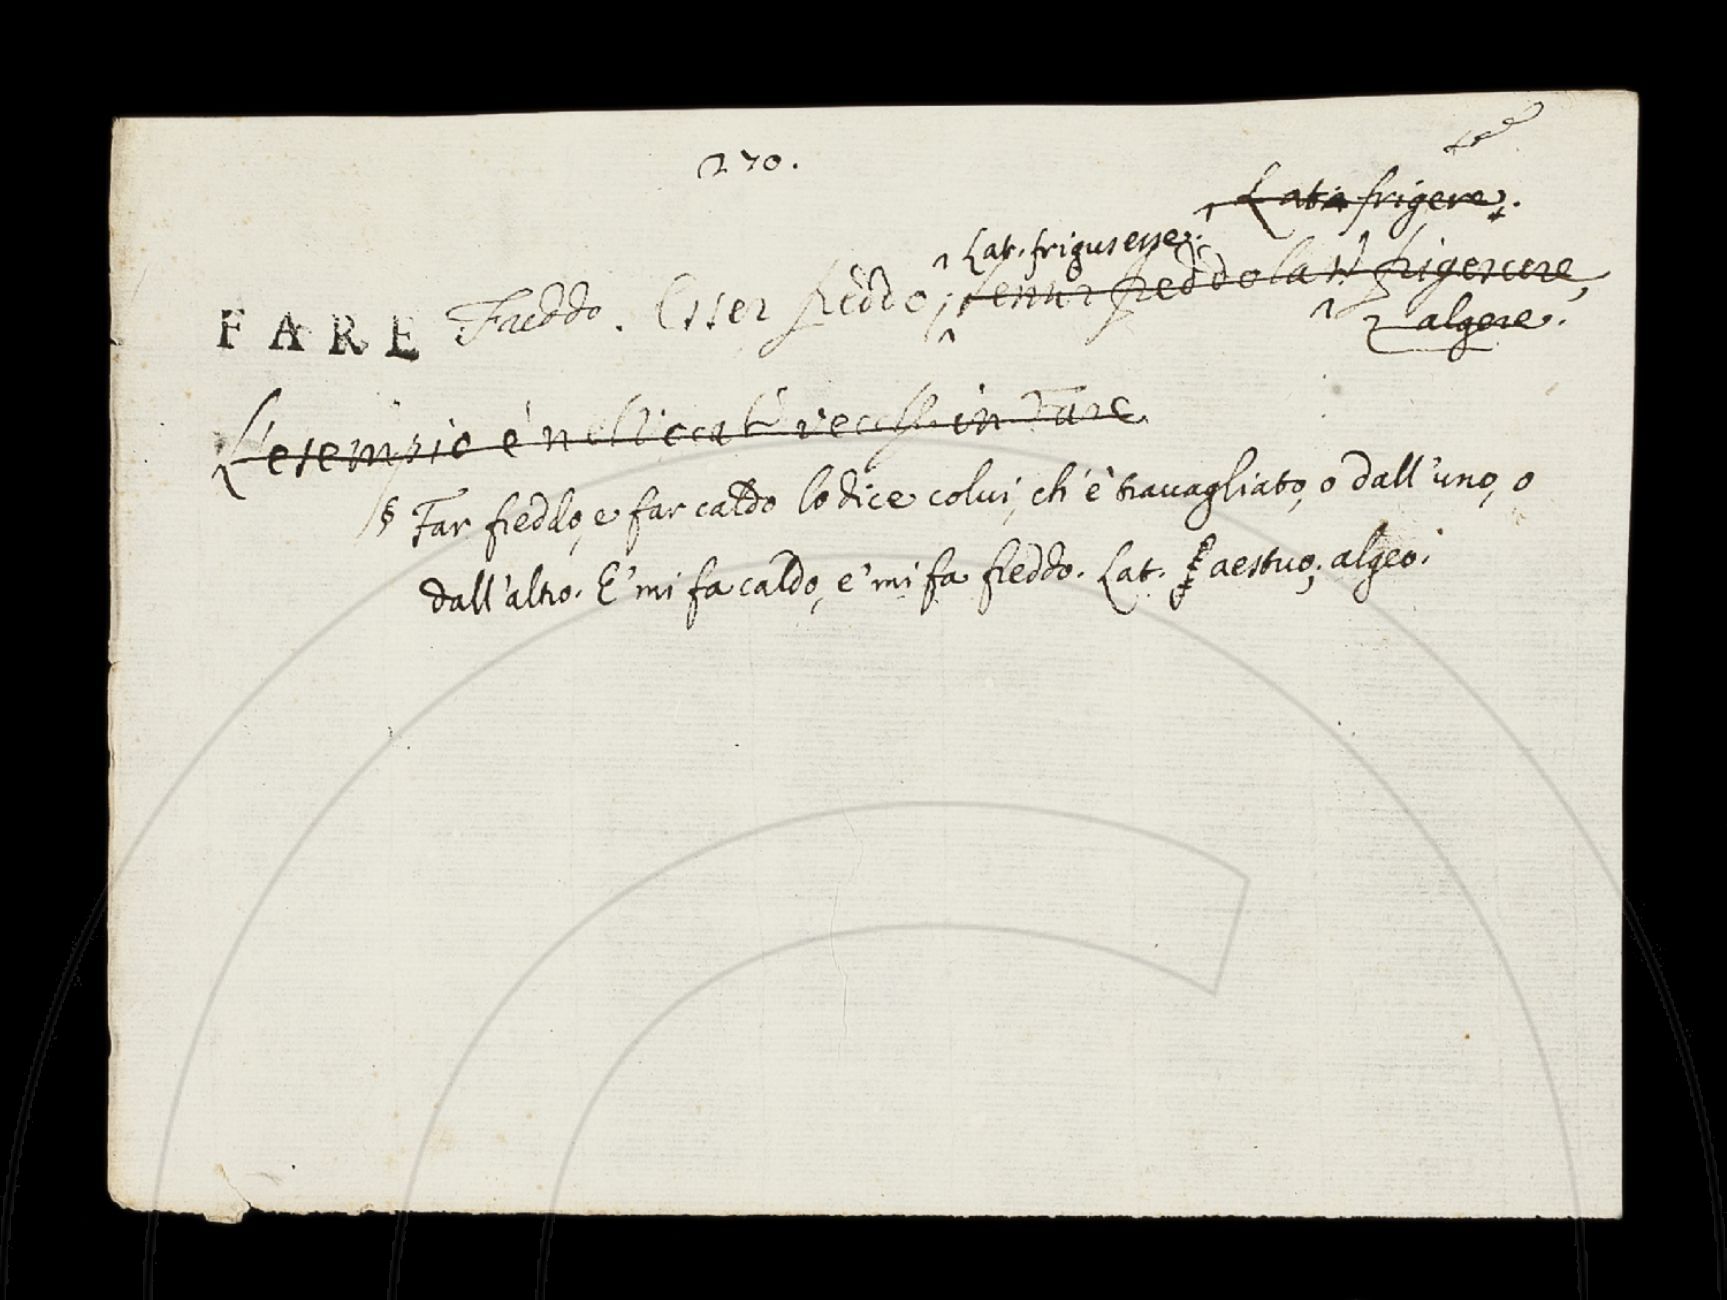 270.
Lat. frigere.
Lat. frigus esse.
FARE Freddo. Esser freddo; senur freddo lat frigescere,
algere.
L'esempio è nelli cat vecchi in Fare
§ Far freddo, e far caldo lo dice colui, ch'è travagliato, o dall'uno, o
dall'altro. E' mi fa caldo, e' mi fa freddo. Lat. aestuo; algeo.